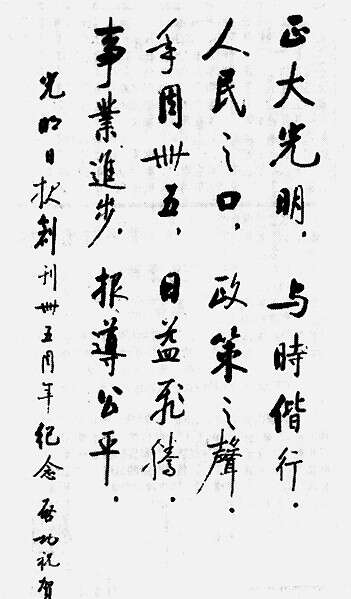 正大光明，与時偕行。
人民之口，政策之聲。
年周卌五，日益飛騰。
事業進步，報導公平。
光明日报創刊卌五周年纪念 启功祝賀